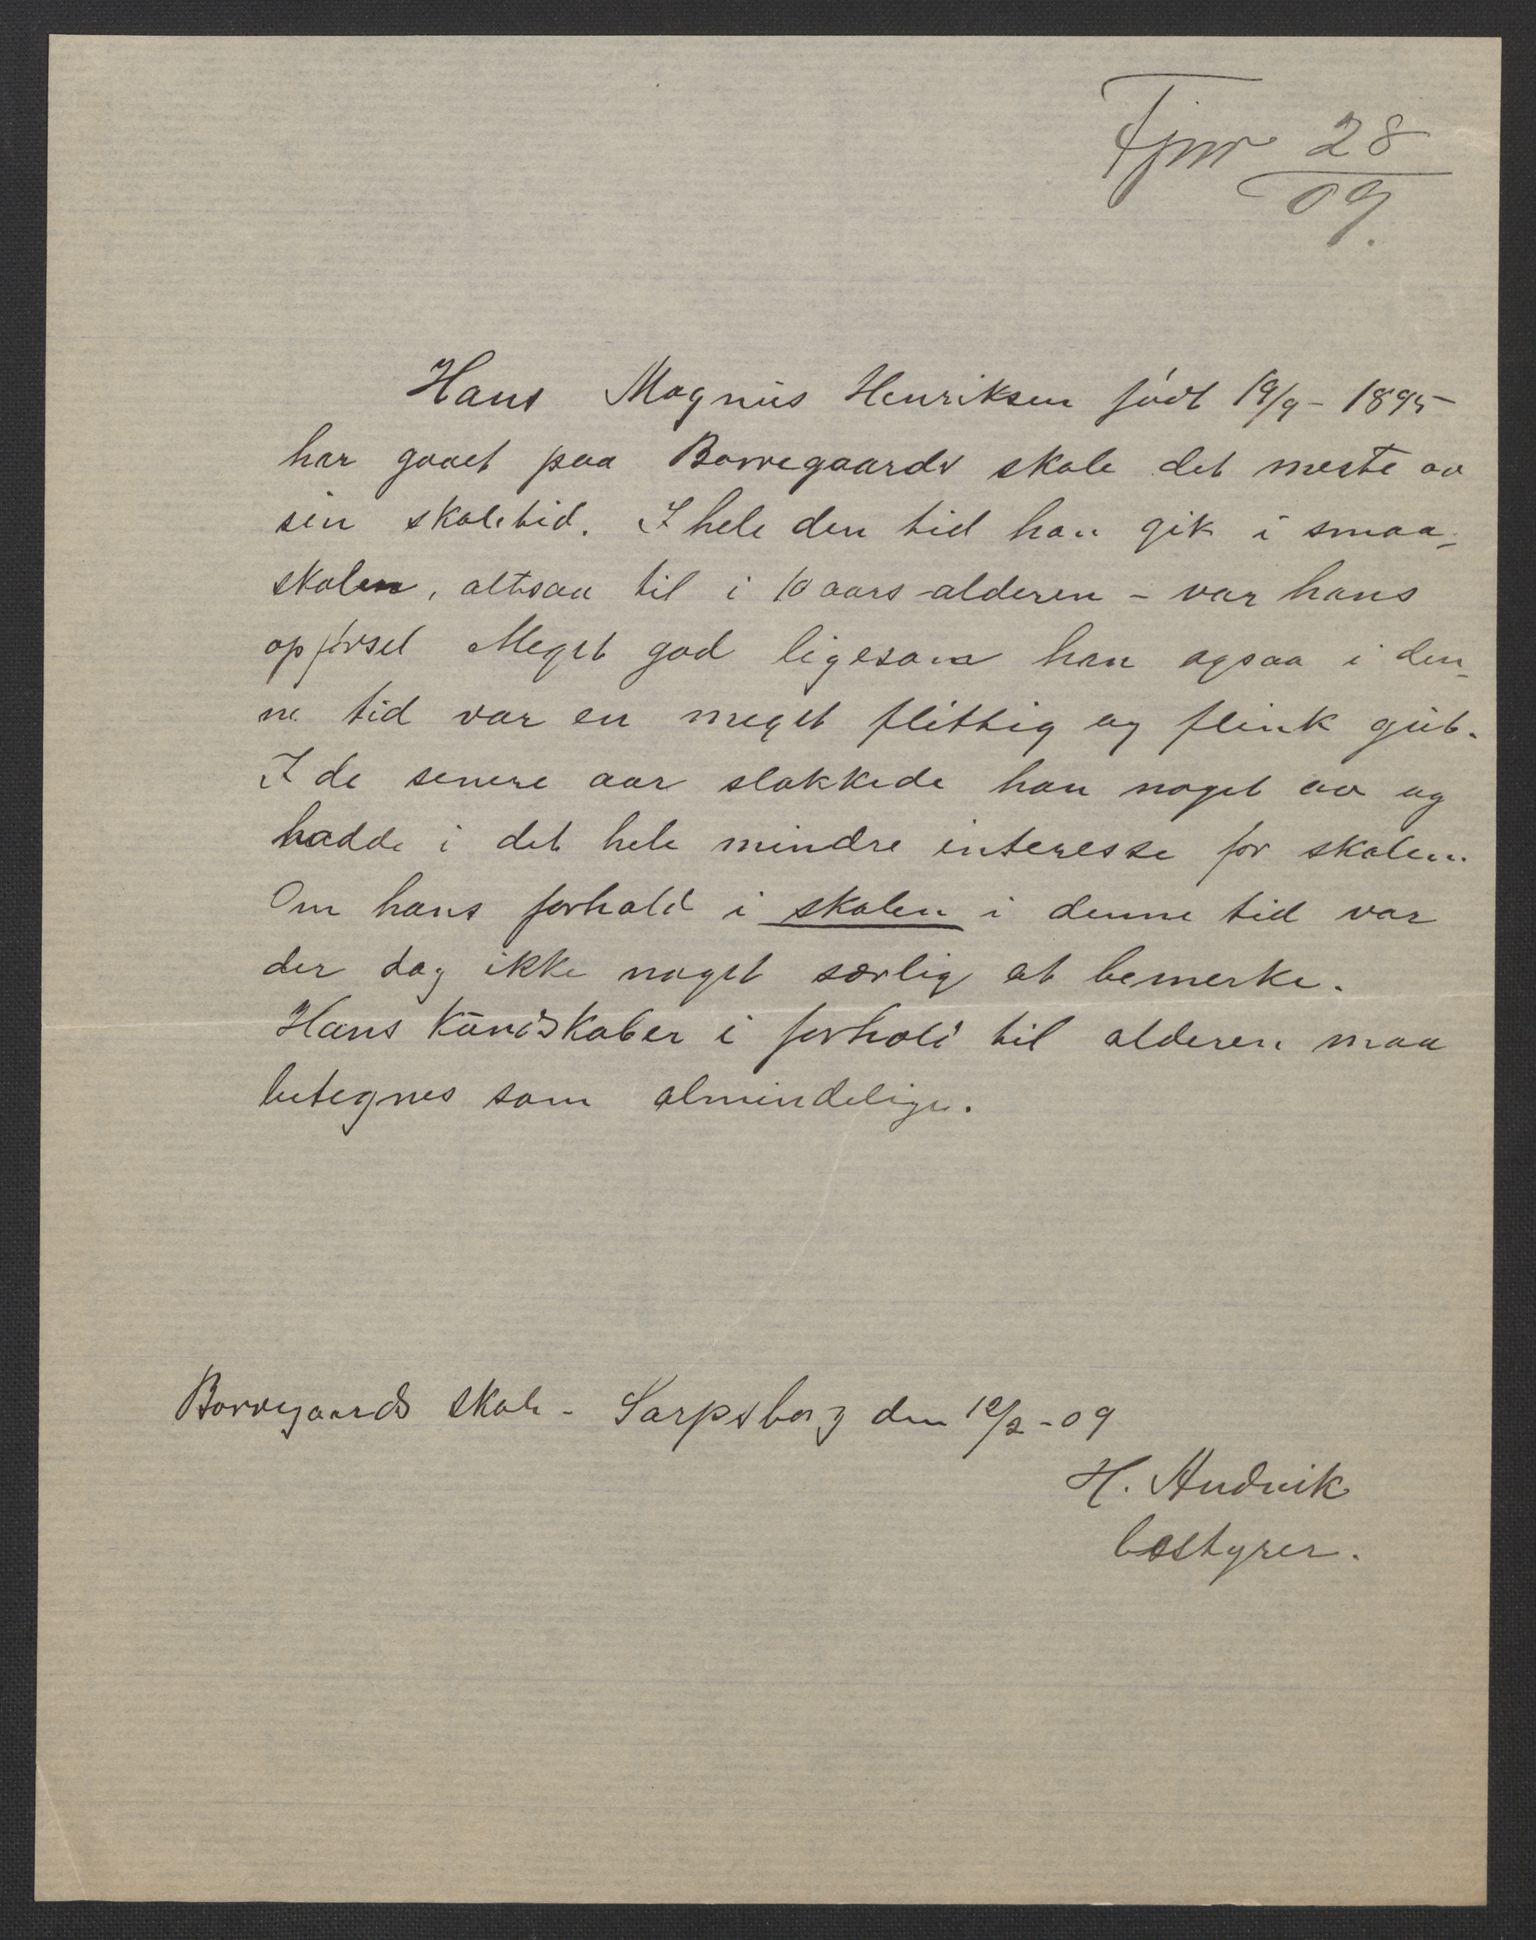 Fjnr 28
09.
Hans Magnus Henriksen født 19/9 - 1895
har gaaet paa Borregaards skole det meste av
sin skoletid. I hele den tid han gik i smaa-
skolen, altsaa til i 10 aars-alderen - var hans
opførsel Meget god ligesom han ogsaa i den-
ne tid var en meget flittig og flink gut.
I de senere aar slakkede han noget av og
hadde i det hele mindre interesse for skolen.
Om hans forhold i skolen i denne tid var
der dog ikke noget særlig at bemerke.
Hans Kundskaber i forhold til alderen maa
betegnes som almindelige.
Borregaards skole - Sarpsborg den 12/2 - 09
H. Andvik
bestyrer.